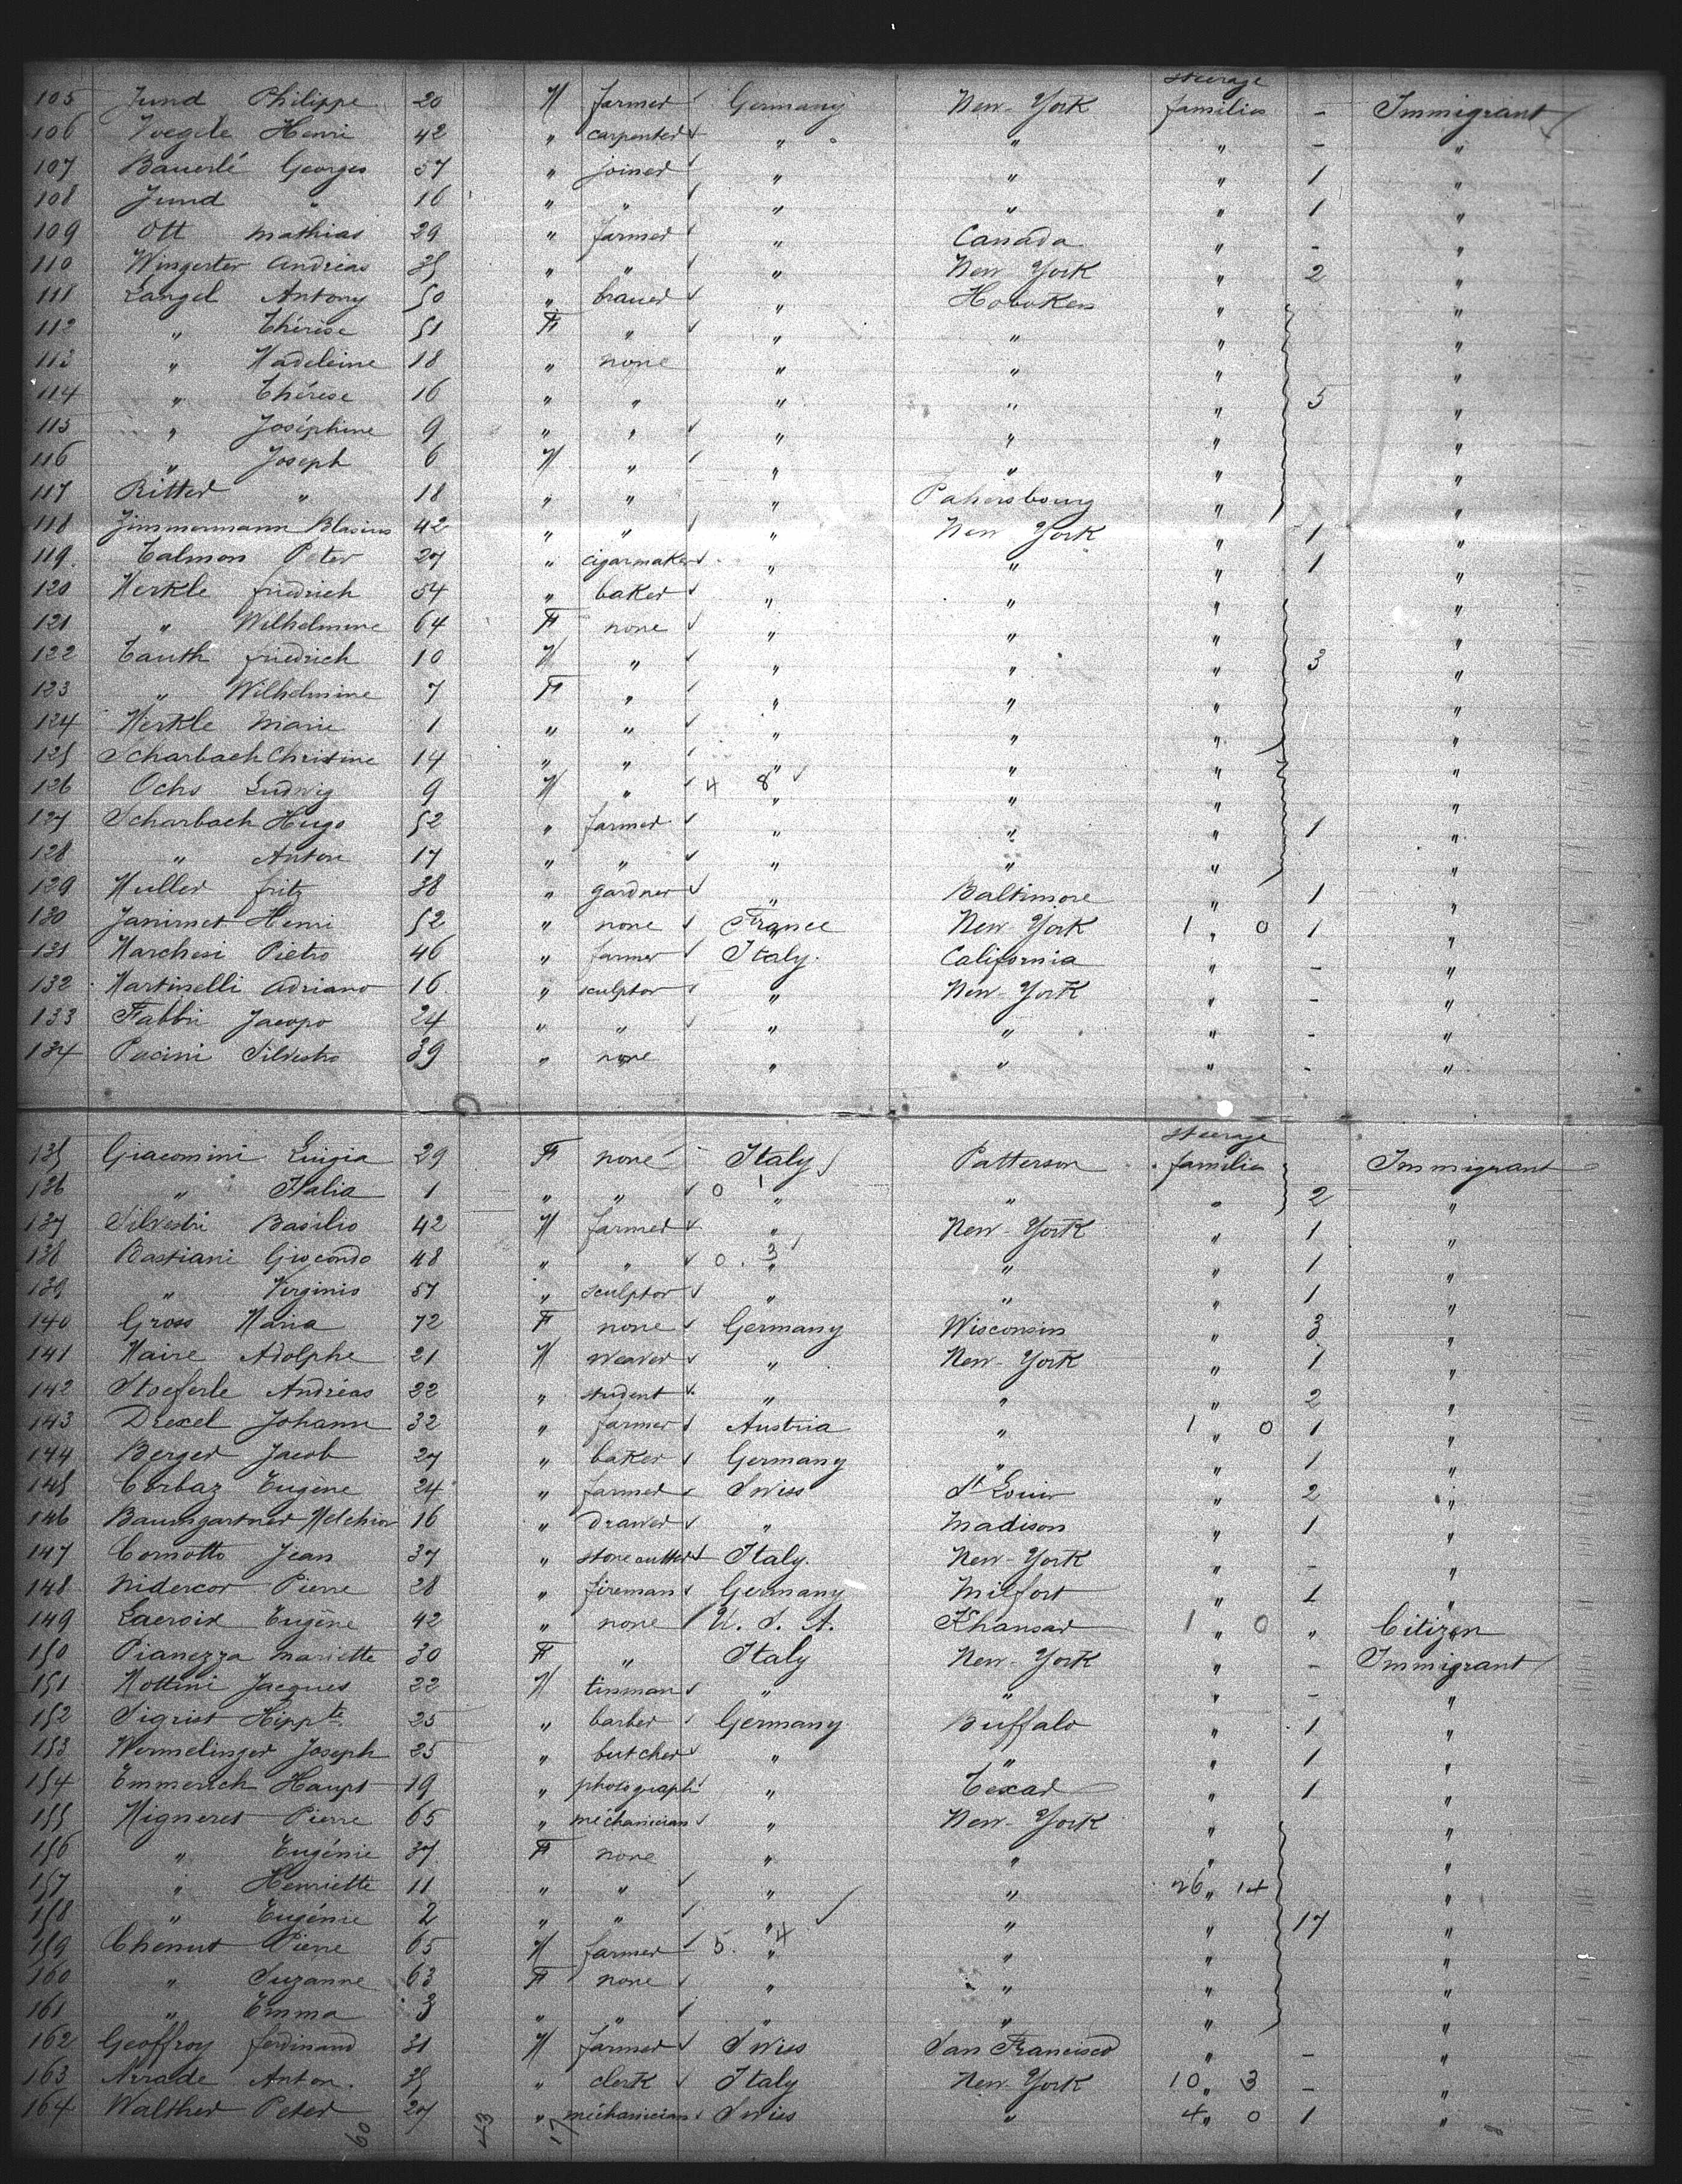 steerage
105 Jund Philippe 20 M farmer Germany New-York families - Immigrant
106 Voegele Henri 42 " carpenter " " " - "
107 Bauerlé Georges 57 " joiner " " " 1 "
108 Jund " 16 " " " " " 1 "
109 Ott Mathias 29 " farmer " Canada " - "
110 Wingerter Andréas 35 " " " New York " 2 "
111 Langel Antony 50 " brauer " Hoboken " "
112 " Thérèse 51 F " " " " "
113 " Madeleine 18 " none " " " "
114 " Thérèse 16 " " " " " 5 "
115 " Joséphine 9 " " " " " "
116 " Joseph 6 M " " " " "
117 Ritter " 18 " " " Pahersbourg " "
118 Zimmermann Blasius 42 " " " New York " 1 "
119 Talmon Peter 27 " cigarmaker " " " 1 "
120 Merkle friedrich 54 " baker " " " "
121 " Wilhelmine 64 F none " " " "
122 Tauth friedrich 10 M " " " " 3 "
123 " Wilhelmine 7 F " " " " "
124 Merkle Marie 1 " " " " " "
125 Scharbach Christine 14 " " " " " "
126 Ochs Ludwig 9 M " 4 8 " " " "
127 Scharbach Hugo 52 " farmer " " " 1 "
128 " Anton 17 " " " " " "
129 Muller fritz 38 " gardner " Baltimore " 1 "
130 Janimet Henri 52 " none France New-York 1 " 0 1 "
131 Marchesi Pietro 46 " farmer Italy. California " - "
132 Martinelli Adriano 16 " sculptor " New-York " - "
133 Fabbri Jacopo 24 " " " " " - "
134 Pacini Silvestro 39 " none " " " - "
steerage
135 Giacomini Luigia 29 F none Italy Patterson families Immigrant
136 " Italia 1 " " 0 1 " " " 2 "
137 Silvestri Basilio 42 M farmer " New-York " 1 "
138 Bastiani Giocondo 48 " " 0. 3 " " " 1 "
139 " Virginio 57 " sculptor " " " 1 "
140 Gross Maria 72 F none Germany Wisconsin " 3 "
141 Maire Adolphe 21 M weaver " New-York " 1 "
142 Stoeferle Andréas 22 " student " " " 2 "
143 Drexel Johann 32 " farmer Austria " 1 " 0 1 "
144 Berger Jacob 27 " baker Germany " " 1 "
145 Corbaz Eugène 24 " farmer Swiss St Louis " 2 "
146 Baumgartner Melchior 16 " drawer " Madison " 1 "
147 Comotto Jean 37 " stone cutter Italy. New-York " - "
148 Nidercor Pierre 28 " fireman Germany Milfort " 1 "
149 Lacroix Eugène 42 " none U. S. A. Khansas 1 " 0 " Citizen
150 Pianezza Mariette 30 F " Italy New-York " - Immigrant
151 Mottini Jacques 22 M tinman " " " - "
152 Sigrist Hippte 25 " barber Germany Buffalo " 1 "
153 Wermelinger Joseph 25 " butcher " " " 1 "
154 Emmerich Haupt 19 " photograph " Texas " 1 "
155 Migneret Pierre 65 " méchanician " New-York " "
156 " Eugénie 37 F none " " " "
157 " Henriette 11 " " " " 26 " 14 "
158 " Eugénie 2 " " " " " 17 "
159 Chenut Pierre 65 M farmer 5. 4 " " " "
160 " Suzanne 63 F none " " " "
161 " Emma 3 " " " " " "
162 Geoffroy ferdinand 31 M farmer Swiss San Francisco " - "
163 Anton. 35 " clerk Italy New-York 10 " 3 - "
164 Walther Peter 27 " méchanician Swiss " 4 " 0 1 "
60 43 17